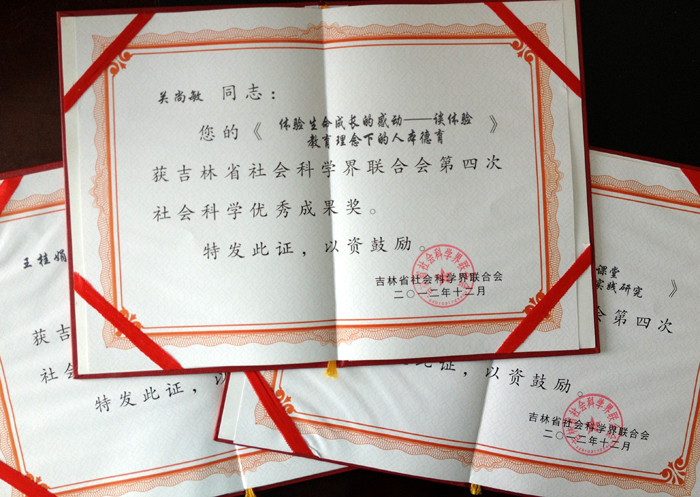 关尚敏 同志：
您的《体验生命成长的感动——读体验
教育理念下的人本德育》
获吉林省社会科学界联合会第四次
社会科学优秀成果奖。
特发此证，以资鼓励。
吉林省社会科学界联合会
二〇一二年十二月
王桂娟
获
社会
特发此证，以
课堂
实践研究》
会第四次
，以资鼓励。
吉林省社会科学界联合会
二〇一二年十二月